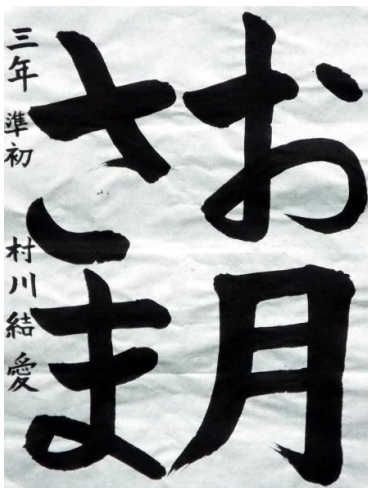 お月
さま
三年 準初 村川結愛